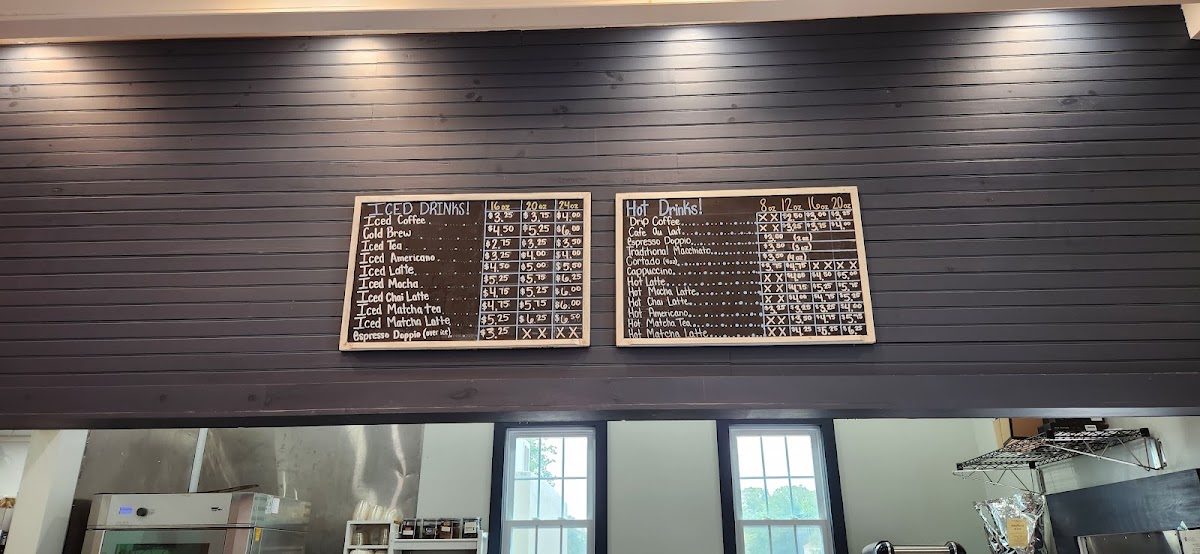 ICED DRINKS! 16oz 20oz 24oz
Iced Coffee $3.25 $3.75 $4.00
Cold Brew $4.50 $5.25 $6.00
Iced Tea $2.75 $3.25 $3.50
Iced Americano $3.25 $4.00 $4.00
Iced Latte $4.50 $5.00 $5.50
Iced Mocha $5.25 $5.75 $6.25
Iced Chai Latte $4.75 $5.25 $6.00
Iced Matcha tea $4.75 $5.75 $6.00
Iced Matcha Latte $5.25 $6.25 $6.50
Espresso Doppio (over ice) $3.25 X X X X
Hot Drinks! 8oz 12oz 16oz 20oz
Drip Coffee X X $2.50 $3.00 $3.25
Cafe Au Lait X X $3.25 $3.75 $4.00
Espresso Doppio $3.00 (2oz)
Traditional Macchiato $3.50 (3oz)
Cortado (4oz) $3.50 (4oz)
Cappuccino $3.75 $4.75 X X X X
Hot Latte X X $4.00
Hot Mocha Latte X X
Hot Chai Latte X X
Hot Americano
Hot Matcha Tea X X
Hot Matcha Latte X X $4.25 $5.25 $6.25